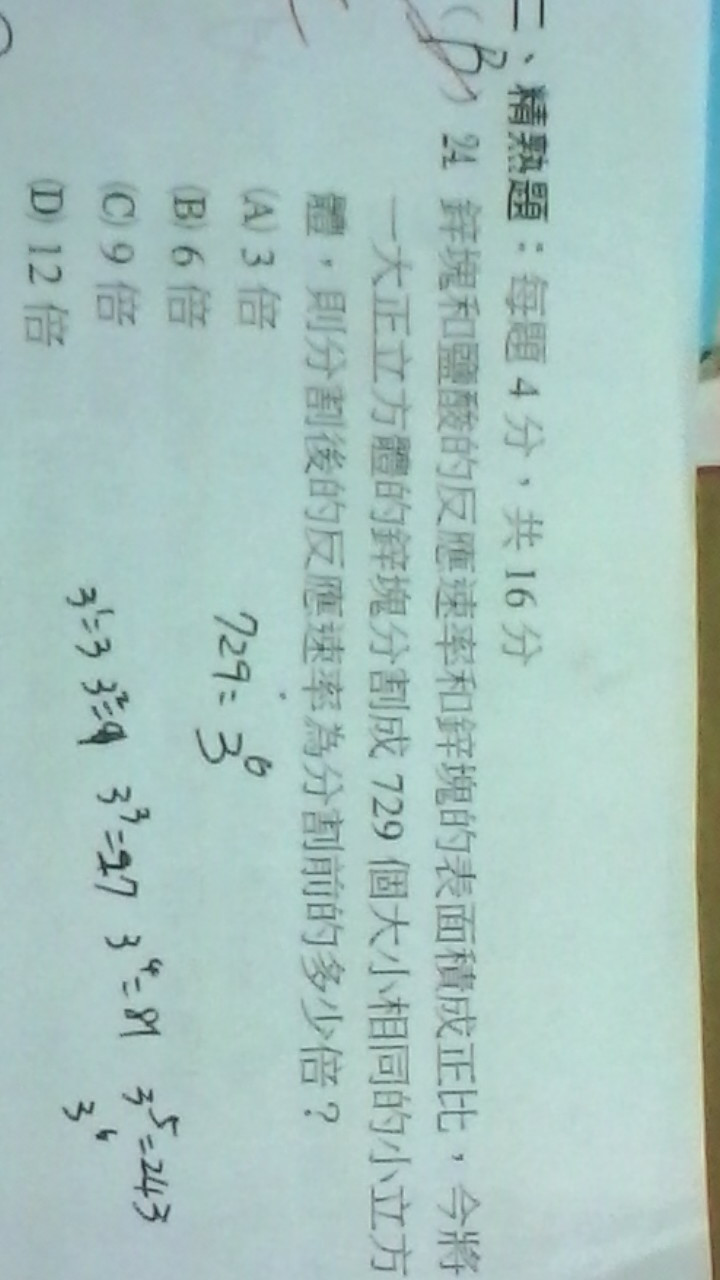 二、精熟題：每題 4 分，共 16 分
( B ) 24 鋅塊和鹽酸的反應速率和鋅塊的表面積成正比，今將
一大正立方體的鋅塊分割成 729 個大小相同的小立方
體，則分割後的反應速率為分割前的多少倍？
(A) 3 倍
(B) 6 倍
(C) 9 倍
(D) 12 倍
729 = 3⁶
3¹=3 3²=9 3³=27 3⁴=81 3⁵=243
3⁶